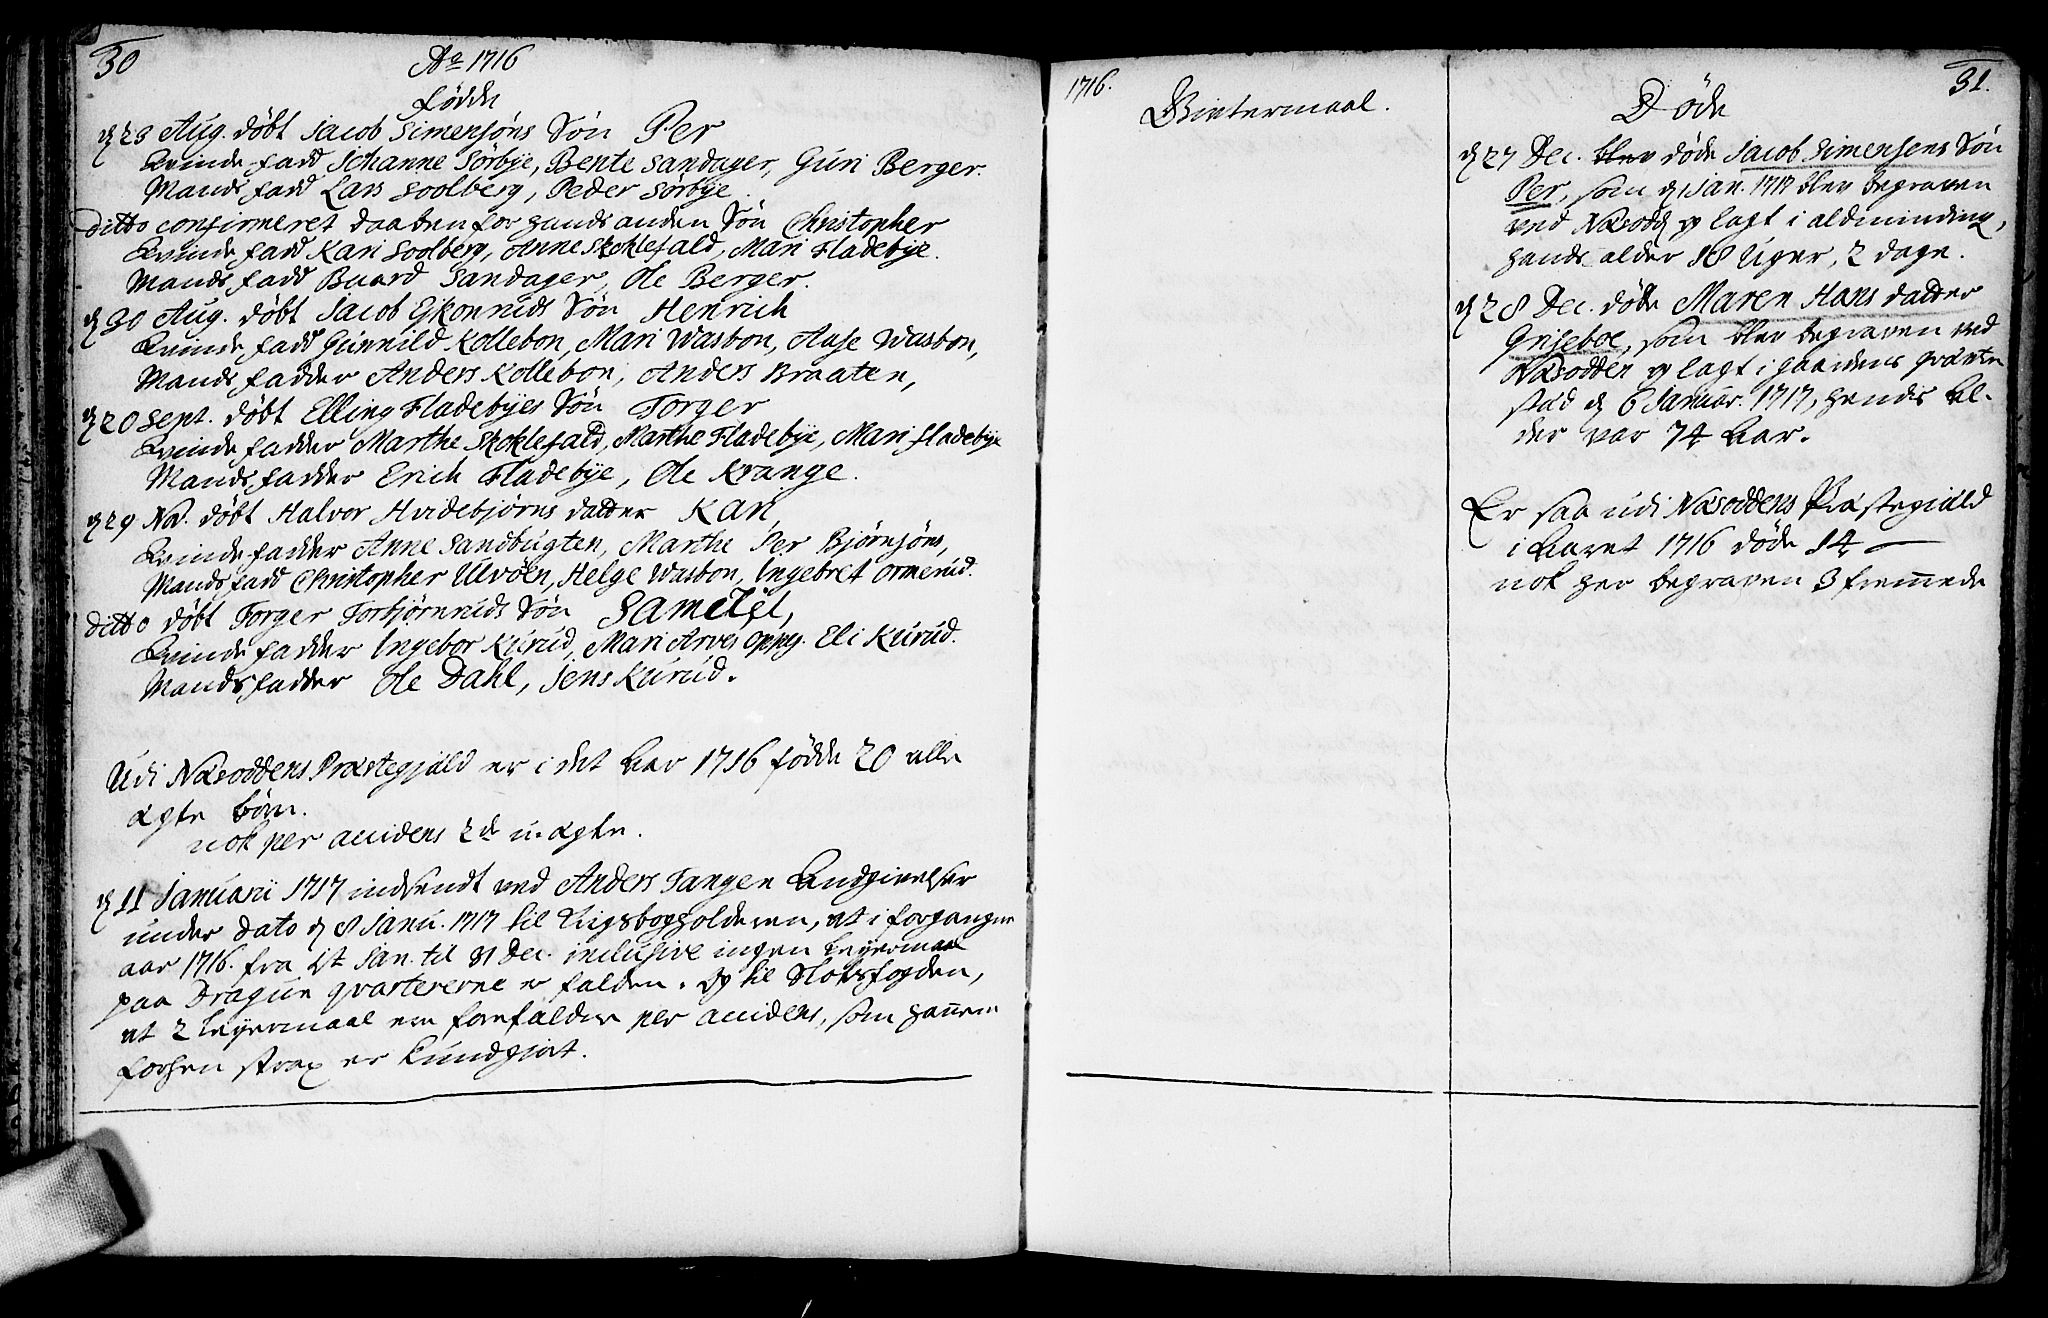 30
Ao 1716
fødde
d 23 Aug. døbt Jacob Simensøns Søn Per
Qvinde fadd Johanne Sørbye, Bente Sandager, Guri Berger.
Mands fadd Lars Soolberg, Peder Sørbye.
Ditto confirmeret daaben for hands anden Søn Christopher
Qvinde fadd Kari Soolberg, Anne Skoklefald, Mari Fladebye.
Mands fadd Baard Sandager, Ole Berger.
d 30 Aug. døbt Jacob Ejkonruds Søn Henrich
Qvinde fadd Gunnild Kollebon, Mari Wasbon, Aase Wasbon,
Mands fadder Anders Kollebon, Anders Braaten,
d 20 Sept. døbt Elling Fladebyes Søn Torger
Qvinde fadder Marthe Skoklefald, Marthe Fladebye, Mari fladebye
Mands fadder Erich Fladebye, Ole Krange.
d 29 No. døbt Halvor Hvidebjørns datter Kari
Qvinde fadder Anne Sandbugten, Marthe Per Bjørnsøns,
Mands fadd Christopher Ulvøen, Helge Wasbon, Ingebret Ormerud.
Ditto døbt Torger Torbjørnruds Søn Samuel,
Qvinde fadder Ingebor Kurud, Mari Arves Oppeg. Eli Kurud.
Mands fadder Ole Dahl, Jens Kurud.
Udi Næsoddens Præstegjæld er i det Aar 1716 fødde 20 alle
ægte børn.
nok per accidens 2de u-ægte.
d 11 Januarii 1717 indsendt ved Anders Tangen Angivelser
under Dato d 8 Janu. 1717 til Krigsbogholderen, at i forgangne
aar 1716. fra 1st Jan. til 31 Dec. inclusive ingen Leyermaal
paa Dragun qvartererne er falden. Og til Slotsfogden,
at 2 Leyermaal ere forefalden per accidens, som hannem
forhen strax er kundgiort.
1716.
Leyermaal.
31.
Døde
d 27 Dec. blev døde Jacob Simensens Søn
Per, som d Jan. 1717 blev begraven
ved Næsodd og lagt i aldminding,
hands alder 18 Uger, 2 dage.
d 28 Dec. døde Maren Hans datter
Griseboe, som blev begraven ved
Næsodden og lagt i gaardens grav
stæd d 6 Januar. 1717, hendis al-
der var 74 Aar.
Er saa udi Næsoddens Præstegiæld
i Aaret 1716 døde 14
nok her begraven 3 fremede